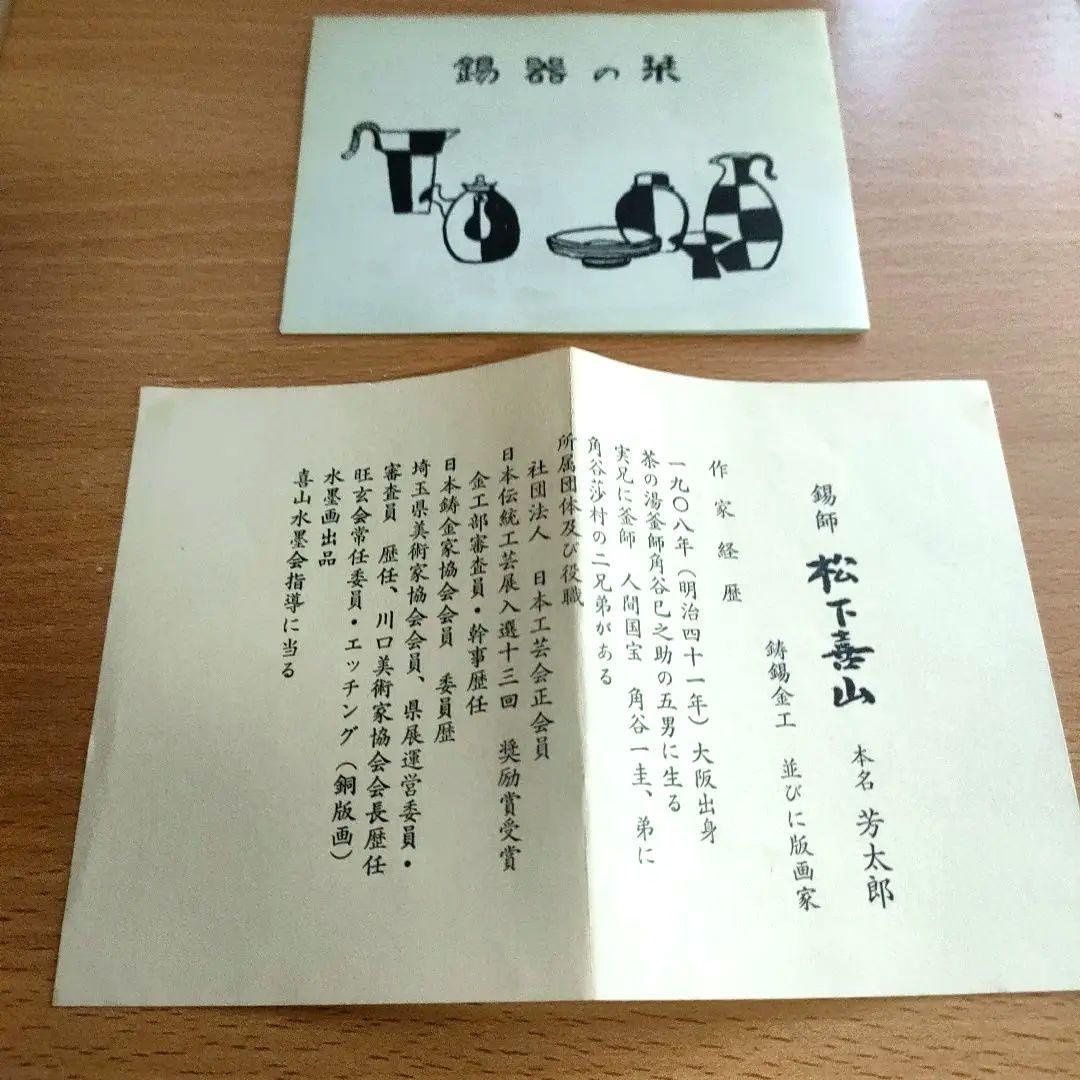 錫器の栞
錫師 松下喜山 本名 芳太郎
鋳錫金工 並びに版画家
作家経歴
一九〇八年(明治四十一年)大阪出身
茶の湯釜師角谷巳之助の五男に生る
実兄に釜師 人間国宝 角谷一圭、弟に
角谷莎村の二兄弟がある
所属団体及び役職
社団法人 日本工芸会正会員
日本伝統工芸展入選十三回 奨励賞受賞
金工部審査員・幹事歴任
日本鋳金家協会会員 委員歴
埼玉県美術家協会会員、県展運営委員・
審査員 歴任、川口美術家協会会長歴任
旺玄会常任委員・エッチング(銅版画)
水墨画出品
喜山水墨会指導に当る